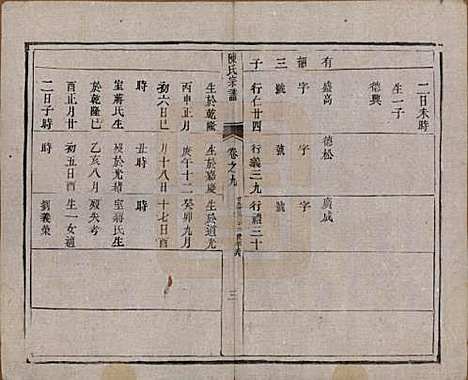 二日未時
生一子
德興
有
三
子
盛高
字
號
行仁廿四
生於乾隆
丙申正月
初六日巳
時
室蔣氏生
於乾隆巳
酉正月廿
二日子時
德松
字
號
行義三九
生於嘉慶
庚午十二
月十八日
丑時
歿於光緒
乙亥八月
初五日酉
時
廣成
字
號
行禮三十
生於道光
癸卯九月
十七日酉
時
室蔣氏生
歿失考
生一女適
劉義榮
陳氏宗譜
卷之九
三